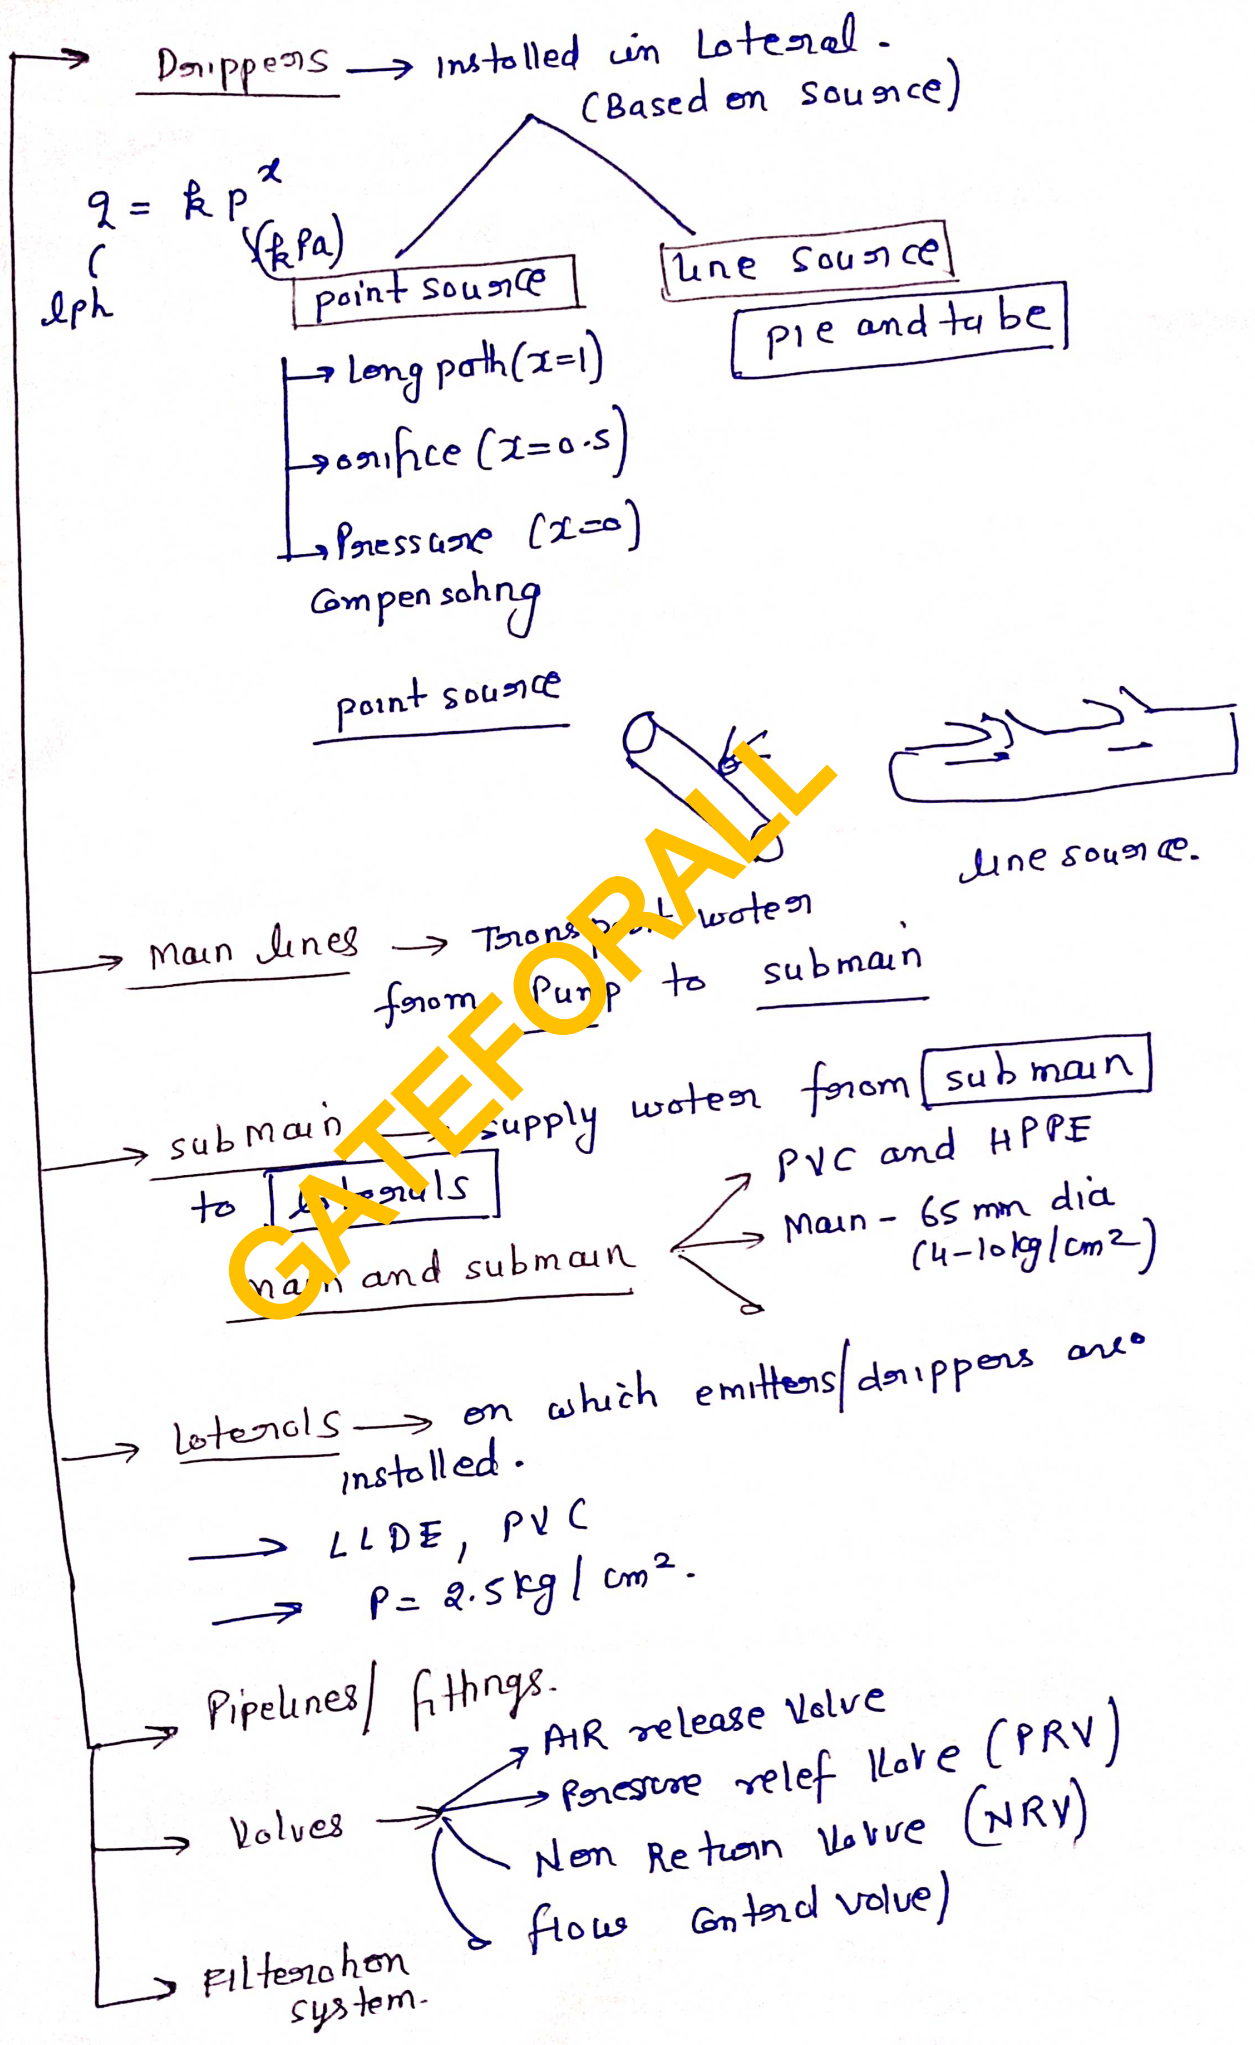 Drippers → installed in Lateral.
(Based on source)
q = k p^x
(kPa)
lph
point source
line source
pie and tube
→ Long path (x=1)
→ orifice (x=0.5)
→ Pressure (x=0)
Compensating
point source
line source.
→ Main lines → Transport water
from Pump to submain
→ submain → supply water from submain
to laterals
PVC and HPPE
Main - 65 mm dia
(4-10 kg/cm2)
main and submain
→ Laterals → on which emitters/drippers are
installed.
→ LLDE, PVC
→ P = 2.5 kg/cm2.
→ Pipelines/fittings.
AIR release Valve
→ Pressure relef Valve (PRV)
→ Valves →
Non Return Valve (NRV)
flow Control valve)
→ Filteration
system.
GATEFORALL